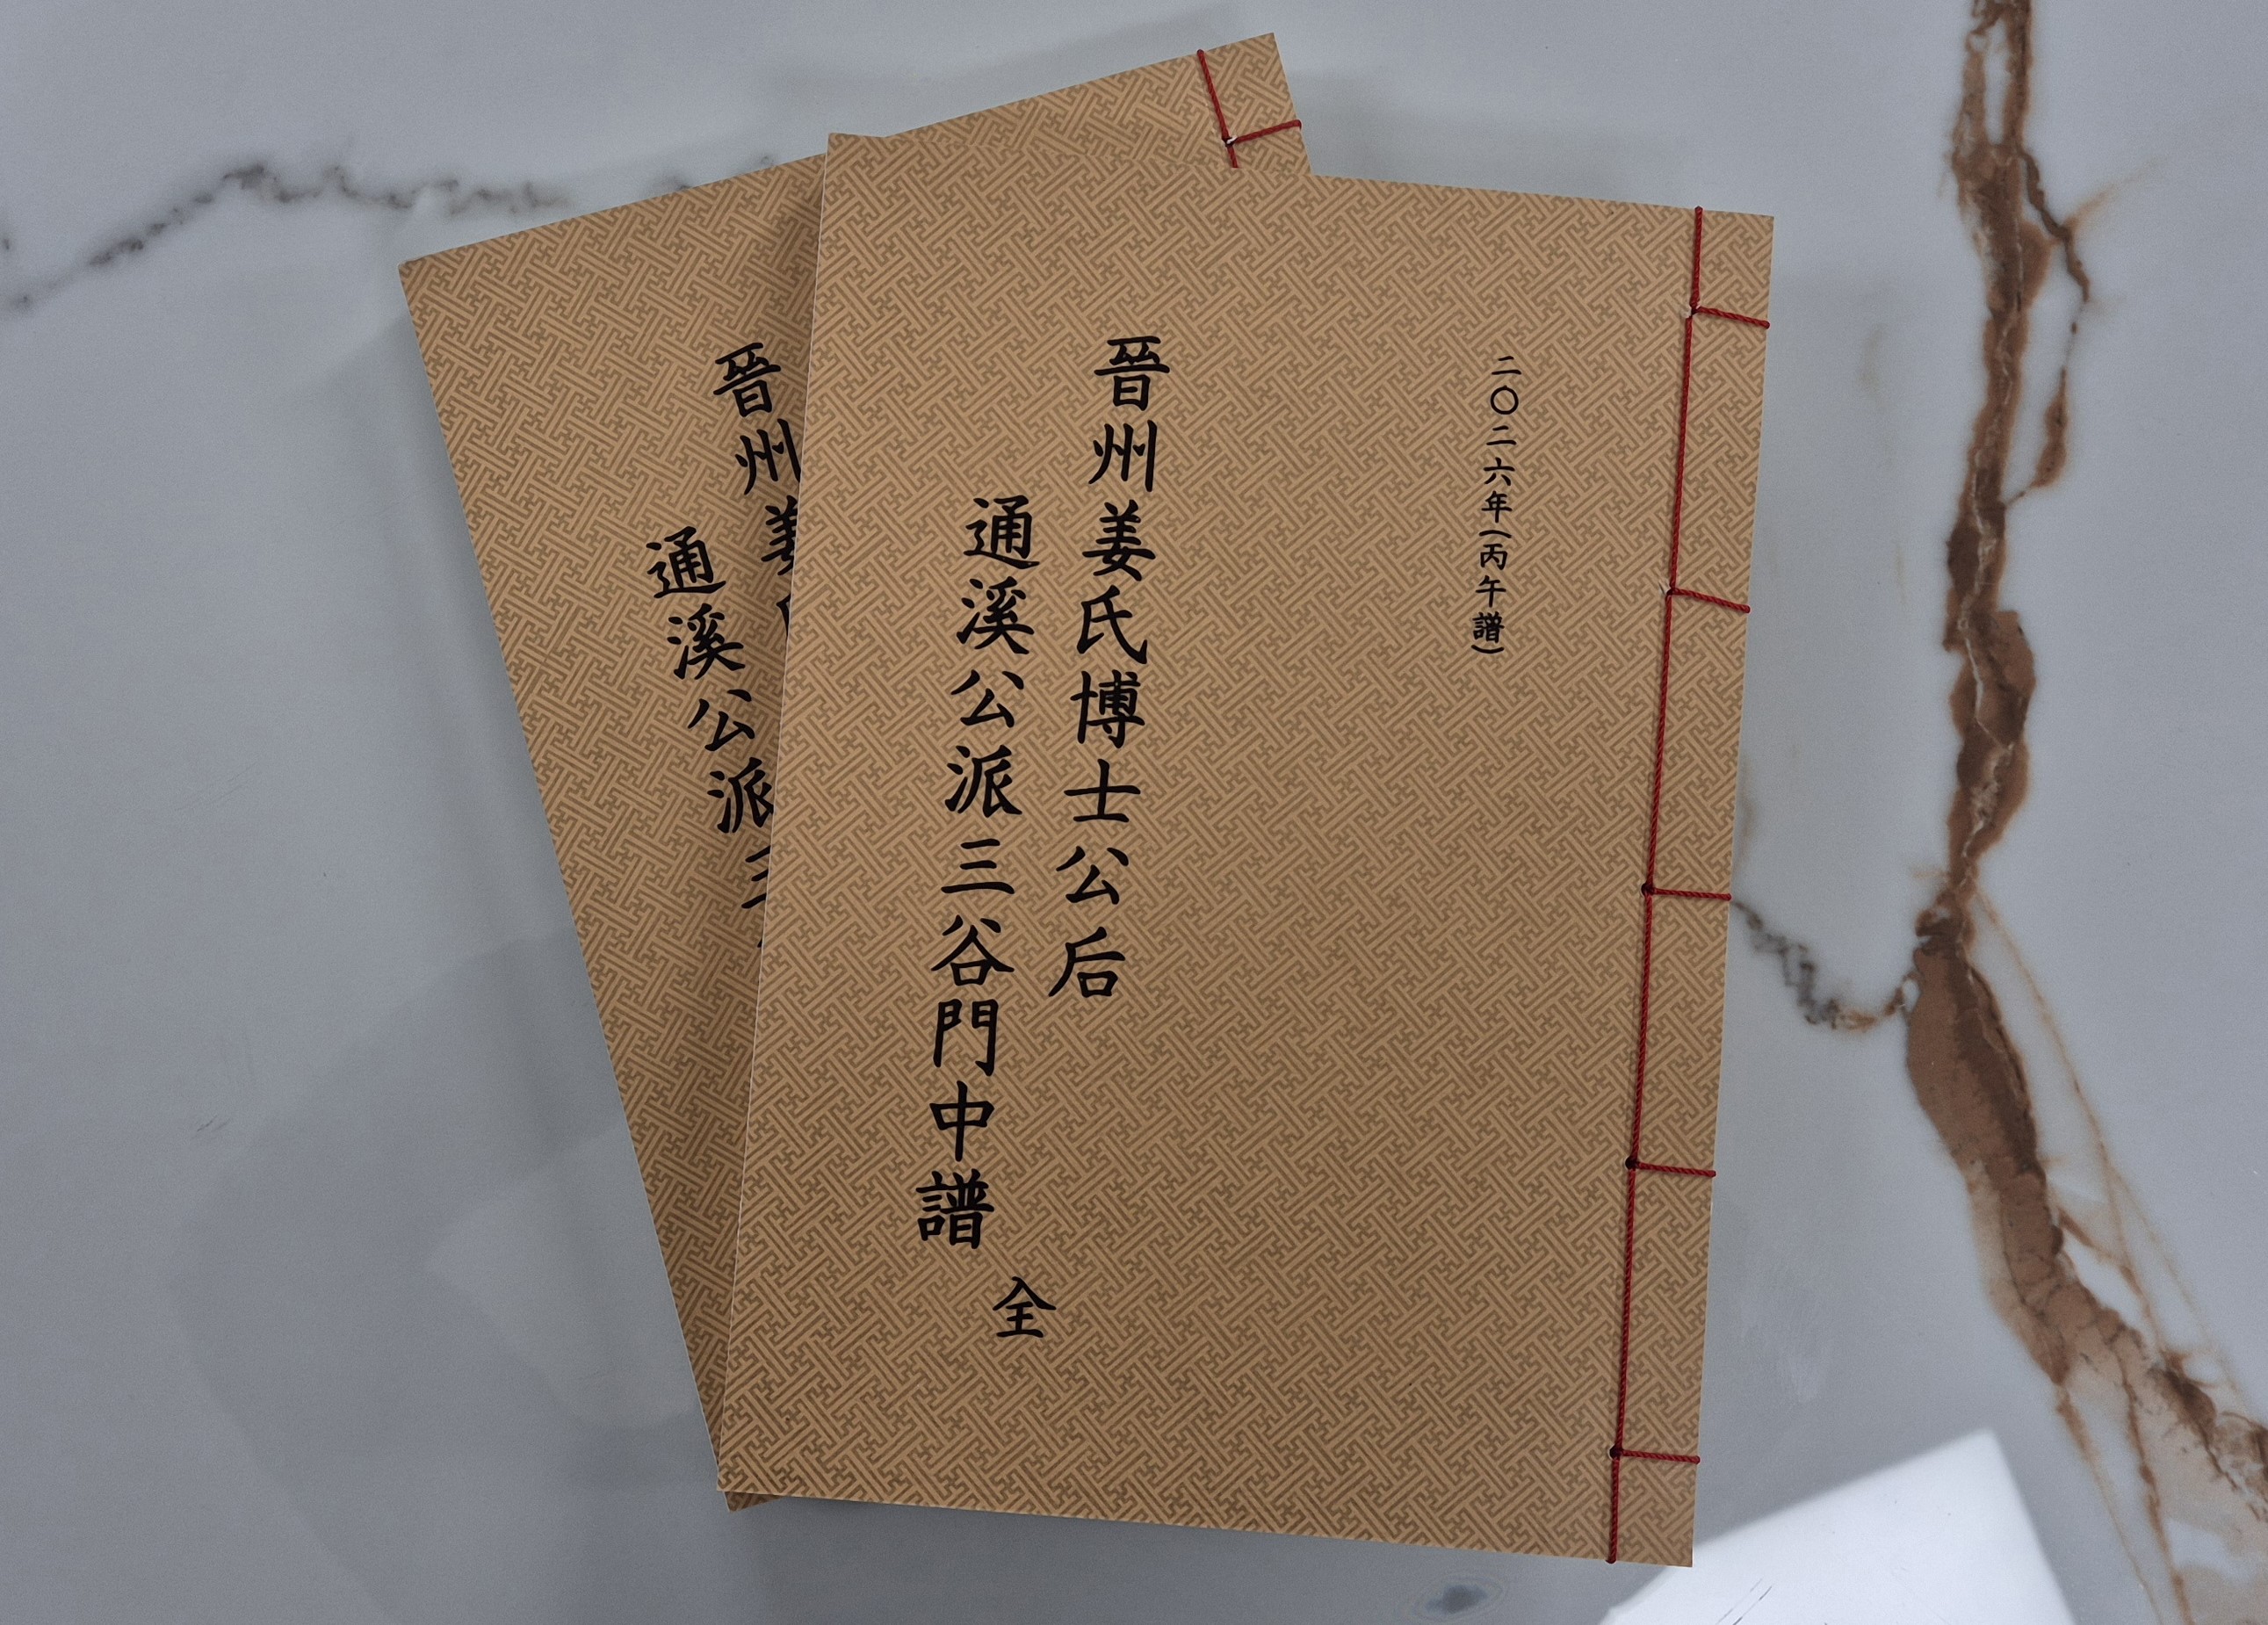 二〇二六年(丙午譜)
晉州姜氏博士公后
通溪公派三谷門中譜
全
晉州姜
通溪公派三